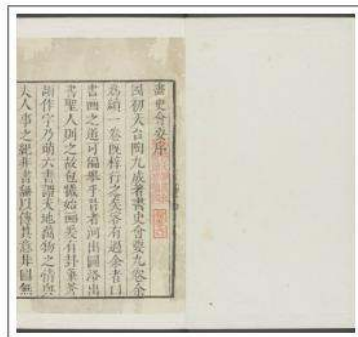 畫史會要序
國初天台陶九成著書史會要九卷余
爲續一卷旣梓行之矣客有過余者曰
書画之道可偏舉乎昔者河出圖洛出
書聖人則之故包犧始画爰有卦 蒼
頡作字乃萌六書謂天地萬物之情與
夫人事之 非書 以傳其意非圖無